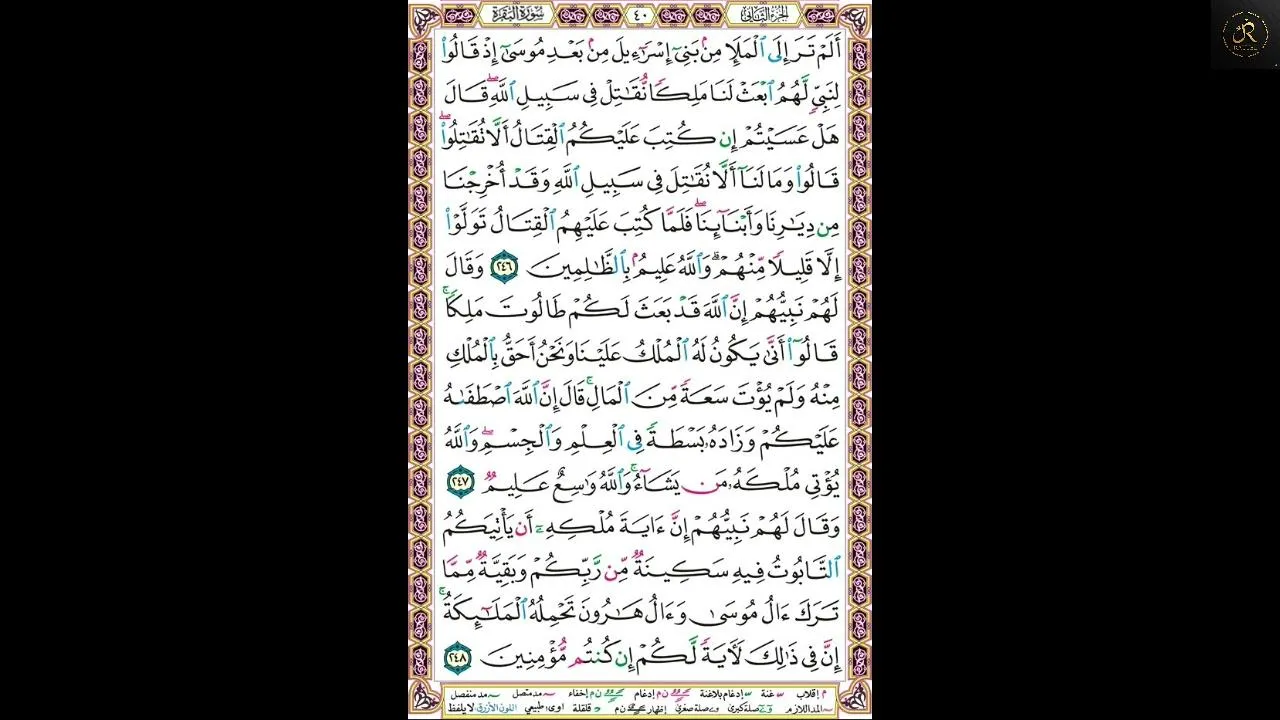 الجزء الثاني
٤٠
سورة البقرة
أَلَمْ تَرَ إِلَى ٱلْمَلَإِ مِنۢ بَنِىٓ إِسْرَٰٓءِيلَ مِنۢ بَعْدِ مُوسَىٰٓ إِذْ قَالُوا۟
لِنَبِىٍّ لَّهُمُ ٱبْعَثْ لَنَا مَلِكًا نُّقَٰتِلْ فِى سَبِيلِ ٱللَّهِ ۖ قَالَ
هَلْ عَسَيْتُمْ إِن كُتِبَ عَلَيْكُمُ ٱلْقِتَالُ أَلَّا تُقَٰتِلُوا۟ ۖ
قَالُوا۟ وَمَا لَنَآ أَلَّا نُقَٰتِلَ فِى سَبِيلِ ٱللَّهِ وَقَدْ أُخْرِجْنَا
مِن دِيَٰرِنَا وَأَبْنَآئِنَا ۖ فَلَمَّا كُتِبَ عَلَيْهِمُ ٱلْقِتَالُ تَوَلَّوْا۟
إِلَّا قَلِيلًا مِّنْهُمْ ۗ وَٱللَّهُ عَلِيمٌۢ بِٱلظَّٰلِمِينَ ٢٤٦ وَقَالَ
لَهُمْ نَبِيُّهُمْ إِنَّ ٱللَّهَ قَدْ بَعَثَ لَكُمْ طَالُوتَ مَلِكًا ۚ
قَالُوٓا۟ أَنَّىٰ يَكُونُ لَهُ ٱلْمُلْكُ عَلَيْنَا وَنَحْنُ أَحَقُّ بِٱلْمُلْكِ
مِنْهُ وَلَمْ يُؤْتَ سَعَةً مِّنَ ٱلْمَالِ ۚ قَالَ إِنَّ ٱللَّهَ ٱصْطَفَىٰهُ
عَلَيْكُمْ وَزَادَهُۥ بَسْطَةً فِى ٱلْعِلْمِ وَٱلْجِسْمِ ۖ وَٱللَّهُ
يُؤْتِى مُلْكَهُۥ مَن يَشَآءُ ۚ وَٱللَّهُ وَٰسِعٌ عَلِيمٌ ٢٤٧
وَقَالَ لَهُمْ نَبِيُّهُمْ إِنَّ ءَايَةَ مُلْكِهِۦٓ أَن يَأْتِيَكُمُ
ٱلتَّابُوتُ فِيهِ سَكِينَةٌ مِّن رَّبِّكُمْ وَبَقِيَّةٌ مِّمَّا
تَرَكَ ءَالُ مُوسَىٰ وَءَالُ هَٰرُونَ تَحْمِلُهُ ٱلْمَلَٰٓئِكَةُ ۚ
إِنَّ فِى ذَٰلِكَ لَءَايَةً لَّكُمْ إِن كُنتُم مُّؤْمِنِينَ ٢٤٨
م إقلاب غنة إدغام بلاغنة ن م إدغام ن م إخفاء مد متصل مد منفصل
المد اللازم صلة كبرى صلة صغرى إظهار ن م قلقلة اوى: طبيعي اللون الأزرق لا يلفظ